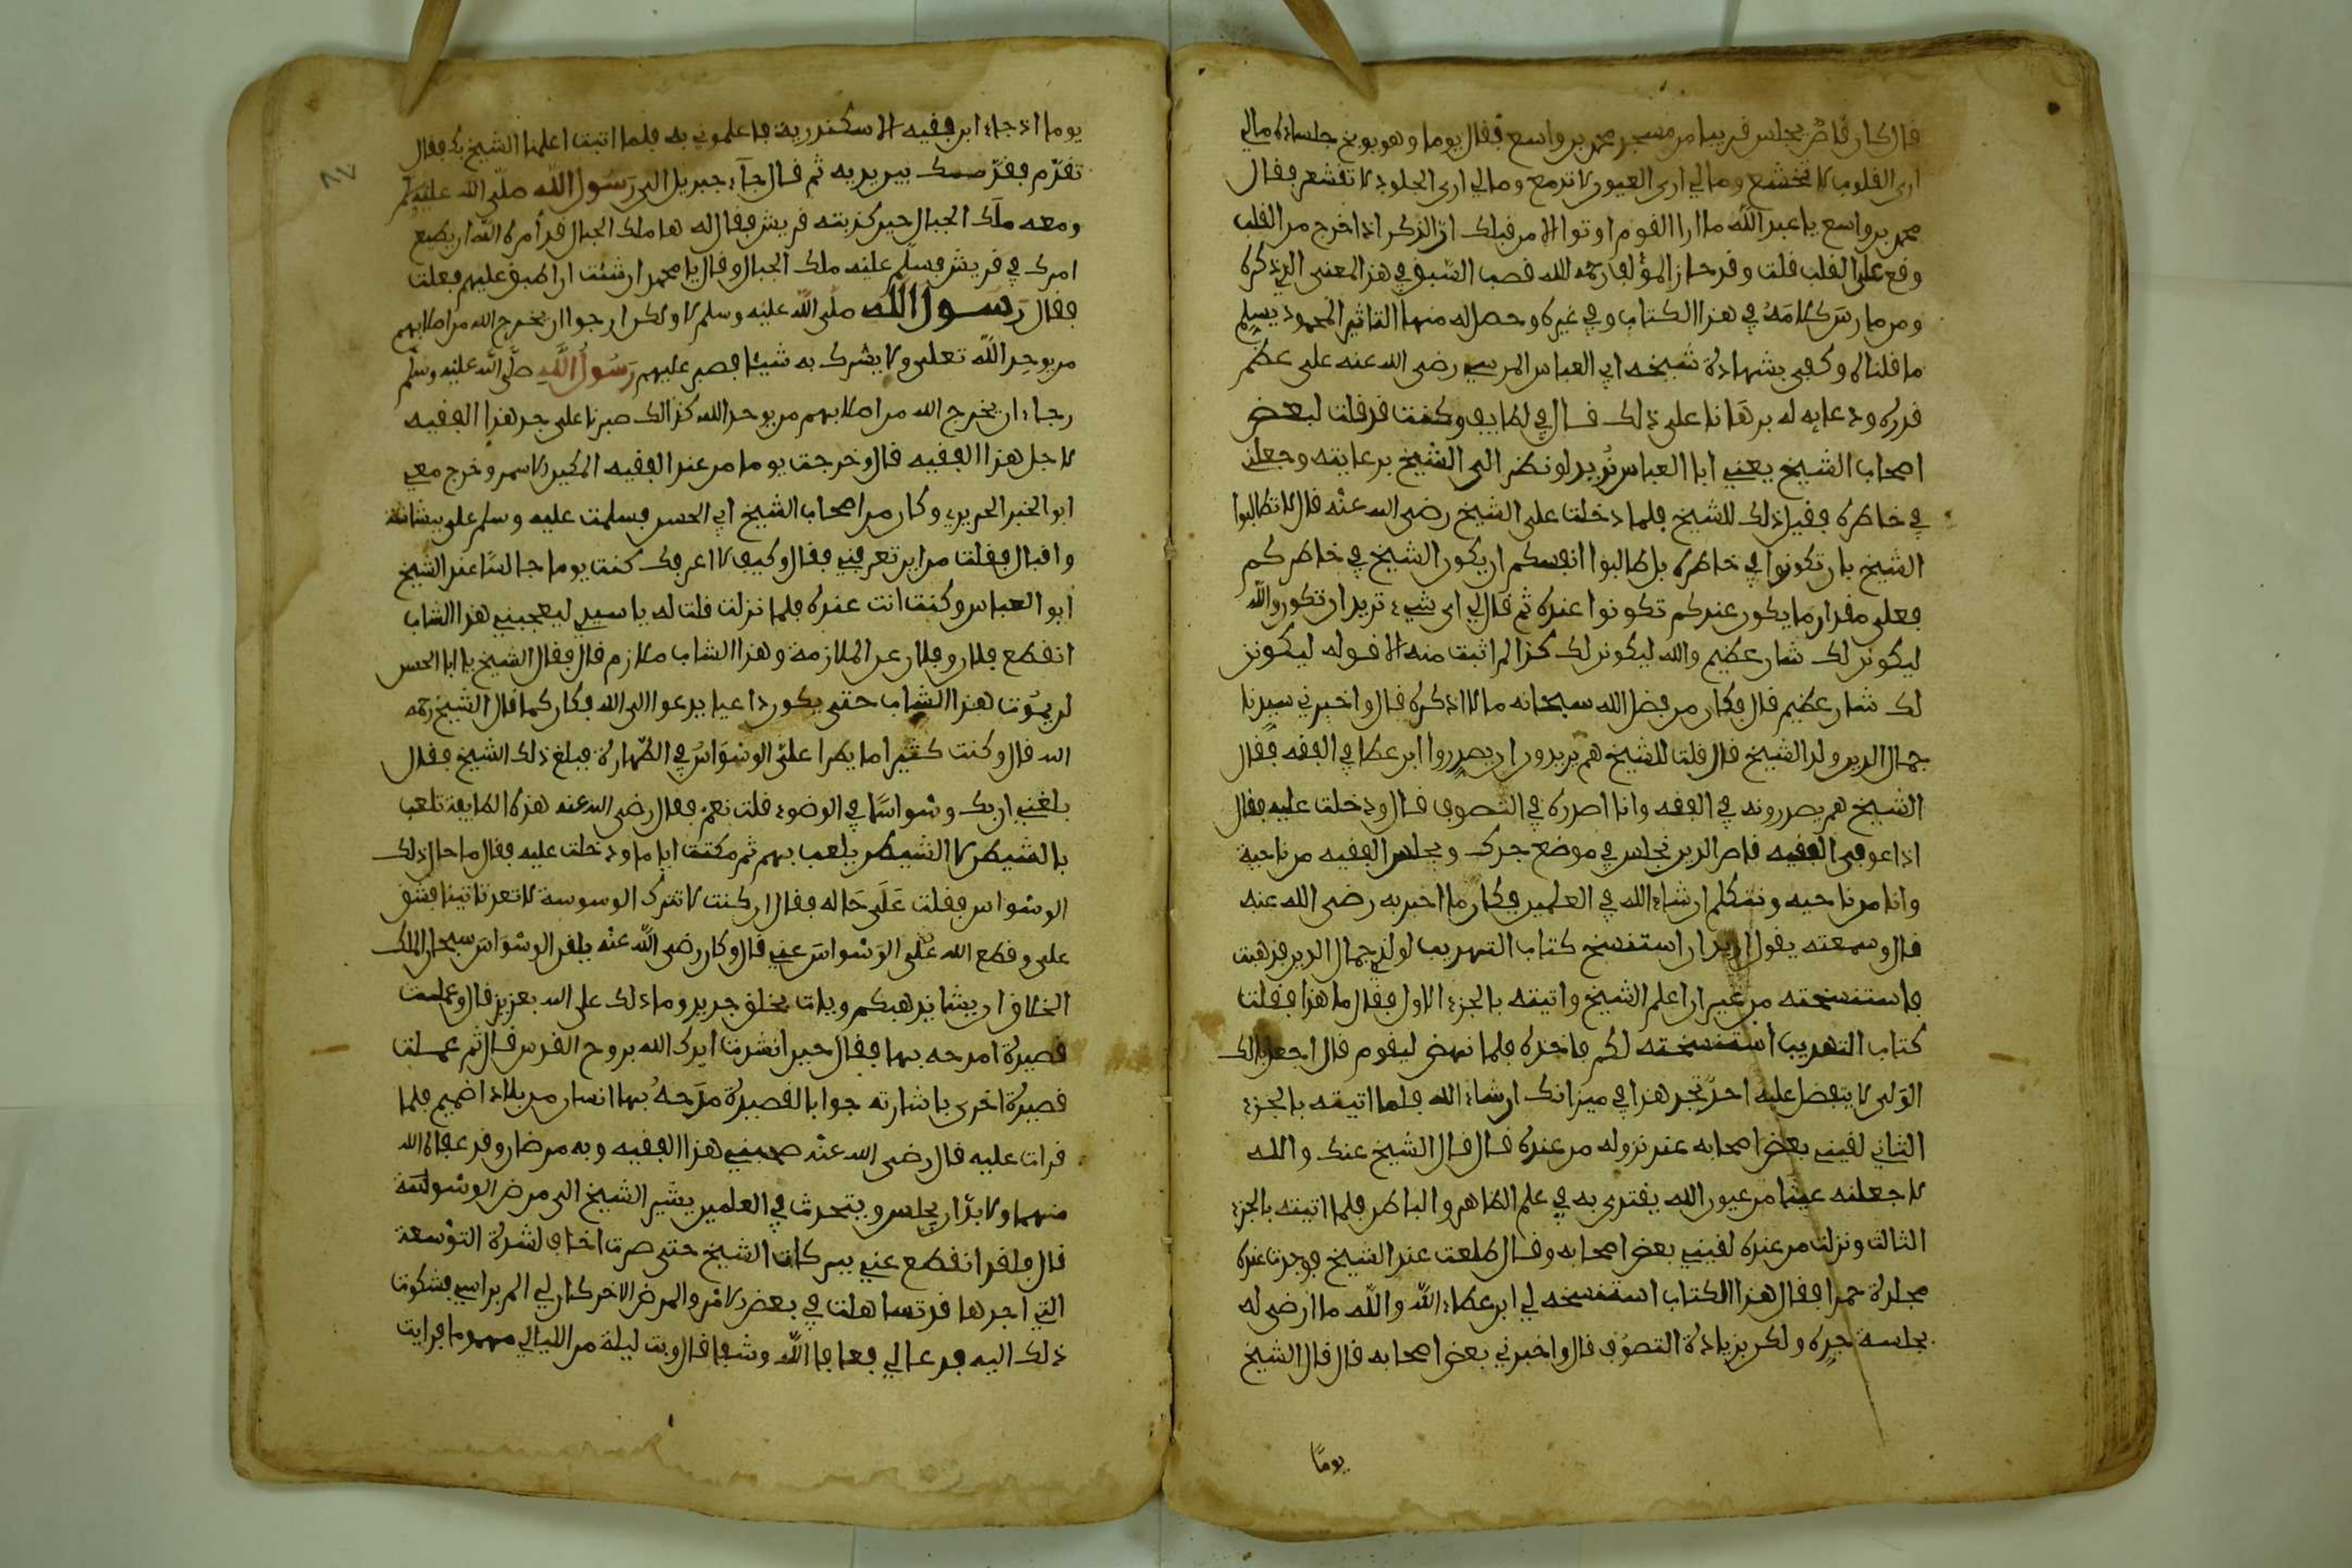 قال كان قاض يجلس قريبا من مسجد محمد بن واسع فقال يوما وهو يوبخ جلساءه مالي
ارى القلوب لا تخشع ومالي ارى العيون لا تدمع ومالي ارى الجلود لا تقشعر فقال
محمد بن واسع يا عبد الله ما ارا القوم اوتوا الا من قبلك ان الذكر اذا خرج من القلب
وقع على القلب قلت وقد حاز المؤلف رحمه الله قصب السبق في هذا المعنى الذي ذكره
ومن مارس كلامه في هذا الكتاب وفي غيره وحصل له منها التاثير المحمود يسلم
ما قلناه وكفى بشهادة شيخه ابي العباس المرسي رضي الله عنه على عظم
قدره ودعايه له برهانا على ذلك قال في لطايف وكنت قد قلت لبعض
اصحاب الشيخ يعني ابا العباس نريد لو نظر الى الشيخ برعايته وجعلني
في خاطره فقيل ذلك للشيخ فلما دخلت على الشيخ رضي الله عنه قال لا تطالبوا
الشيخ بان تكونوا في خاطره بل طالبوا انفسكم ان يكون الشيخ في خاطركم
فعلى مقدار ما يكون عندكم تكونوا عنده ثم قال لي اي شيء تريد ان تكون والله
ليكونن لك شان عظيم والله ليكونن لك كذا لم اثبت منه الا قوله ليكونن
لك شان عظيم قال فكان من فضل الله سبحانه ما لا اذكره قال واخبرني سيدنا
جمال الدين ولد الشيخ قال قلت للشيخ هم يريدون ان يصدروا ابن عطا في الفقه فقال
الشيخ هم يصدرونه في الفقه وانا اصدره في التصوف قال ودخلت عليه فقال
اذا عوفى الفقيه ناصر الدين نجلس في موضع جدك ويجلس الفقيه من ناحية
وانا من ناحيه ونتكلم ان شاء الله في العلمين فكان ما اخبر به رضي الله عنه
قال وسمعته يقول اريد ان استنسخ كتاب التهذيب لولدي جمال الدين فذهبت
فاستنسخته من غير ان اعلم الشيخ واتيته بالجزء الاول فقال ما هذا فقلت
كتاب التهذيب استنسخته لكم فاخذه فلما نهض ليقوم قال اجعل بالك
الولي لا يتفضل عليه احد تجد هذا في ميزانك ان شاء الله فلما اتيته بالجزء
الثاني لقيني بعض اصحابه عند نزوله من عنده قال قال الشيخ عنك والله
لا جعلنه عينا من عيون الله يقتدى به في علم الظاهر والباطن فلما اتيته بالجزء
الثالث ونزلت من عنده لقيني بعض اصحابه وقال طلعت عند الشيخ فوجدت عنده
مجلدة حمرا فقال هذا الكتاب استنسخه لي ابن عطاء الله والله ما ارضى له
بجلسة جده ولكن بزيادة التصوف قال واخبرني بعض اصحابه قال قال الشيخ
يوما
يوما اذا جاء ابن فقيه الاسكندرية فاعلموني به فلما اتيت اعلمنا الشيخ بك فقال
تقدم فقدمك بين يديه ثم قال جاء جبريل الى رسول الله صلى الله عليه وسلم
ومعه ملك الجبال حين كذبته قريش فقال له هذا ملك الجبال قد امره الله ان يطيع
امرك في قريش فسلم عليه ملك الجبال وقال يا محمد ان شئت ان اطبق عليهم فعلت
فقال رسول الله صلى الله عليه وسلم لا ولكن ارجوا ان يخرج الله من اصلابهم
من يوحد الله تعلى ولا يشرك به شيئا فصبر عليهم رسول الله صلى الله عليه وسلم
رجاء ان يخرج الله من اصلابهم من يوحد الله كذالك صبرنا على جد هذا الفقيه
لاجل هذا الفقيه قال وخرجت يوما من عند الفقيه المكين الاسمر وخرج معي
ابو الخير الحريري وكان من اصحاب الشيخ ابي الحسن فسلمت عليه وسلم علي ببشاشة
واقبال فقلت من اين تعرفني فقال وكيف لا اعرفك كنت يوما جالسا عند الشيخ
ابو العباس وكنت انت عنده فلما نزلت قلت له يا سيدي ليعجبني هذا الشاب
انقطع فلان وفلان عن الملازمة وهذا الشاب ملازم قال فقال الشيخ يا ابا الحسن
لن يموت هذا الشاب حتى يكون داعيا يدعوا الى الله فكان كما قال الشيخ رحمه
الله قال وكنت كثيرا ما يطرا علي الوسواس في الطهارة فبلغ ذلك الشيخ فقال
بلغني ان بك وسواسا في الوضوء قلت نعم فقال رضي الله عنه هذه الطايفة تلعب
بالشيطن لا الشيطن يلعب بهم ثم مكثت اياما ودخلت عليه فقال ما حال ذلك
الوسواس فقلت على حاله فقال ان كنت لا تترك الوسوسة لا تعد تاتينا فشق
علي وقطع الله علي الوسواس عني قال وكان رضي الله عنه يلقن الوسواس سبحان الملك
الخلاق ان يشا يذهبكم ويات بخلق جديد وما ذلك على الله بعزيز قال وعملت
قصيدة امدحه بها فقال حين انشدت ايدك الله بروح القدس قال ثم عملت
قصيدة اخرى باشارته جوابا لقصيدة مدحه بها انسان من بلاد اخميم فلما
قرات عليه قال رضي الله عنه صحبني هذا الفقيه وبه مرضان وقد عافاه الله
منهما ولا بد ان يجلس ويتحدث في العلمين يشير الشيخ الى مرض الوسوسة
قال فلقد انقطع عني ببركات الشيخ حتى صرت اخاف لشدة التوسعة
التي اجدها قد تساهلت في بعض الامر والمرض الاخر كان لي الم براسي فشكوت
ذلك اليه فدعا لي فعافا الله وشفا قال وبت ليلة من الليالي مهموما فرايت